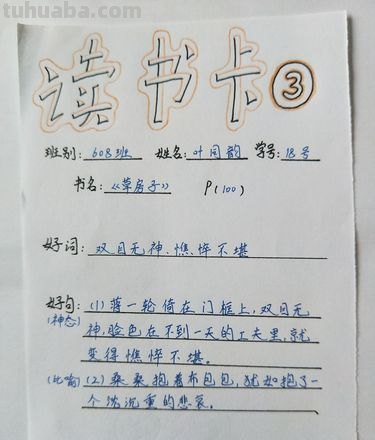 tuhuaba.com
读书卡③
班别：608班 姓名：叶同韵 学号：18号
书名：《草房子》 P(100)
好词：双目无神、憔悴不堪
好句：(1)蒋一轮倚在门框上，双目无
(神态)神，脸色在不到一天的工夫里，就
变得憔悴不堪。
(比喻)(2)桑桑抱着布包包，犹如抱了一
个沈沉重的悲哀。